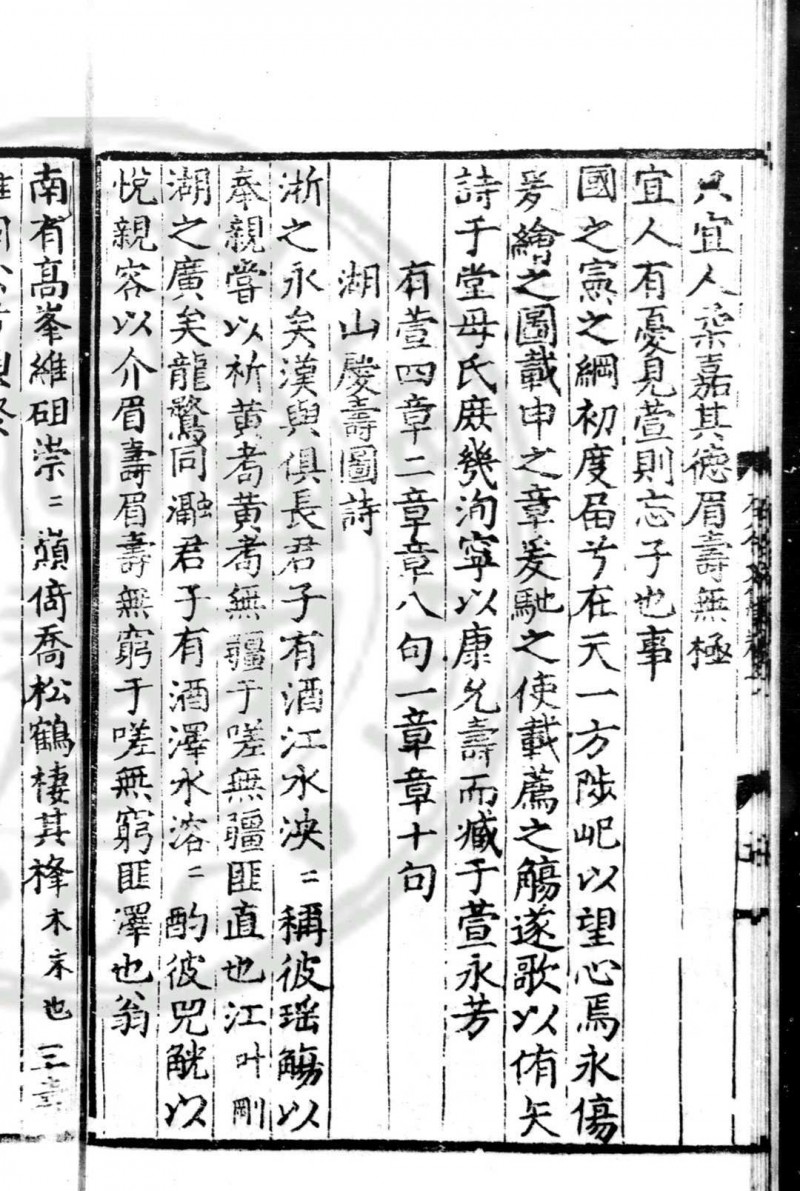 只宜人柔嘉其德眉壽無極
宜人有憂見萱則忘子也事
國之憲之綱初度届兮在天一方陟屺以望心焉永傷
爰繪之圖載申之章爰馳之使載薦之觴遂歌以侑矢
詩于堂母氏庶幾洵寧以康允壽而臧于萱永芳
有萱四章二章章八句一章章十句
湖山慶壽圖詩
浙之永矣漢與俱長君子有酒江水泱〻稱彼瑶觴以
奉親嘗以祈黄耇黄耇無疆于嗟無疆匪直也江叶剛
湖之廣矣龍鶩同瀜君子有酒澤水溶〻酌彼兕觥以
悅親容以介眉壽眉壽無窮于嗟無窮匪澤也翁
南有高峯維砠崇〻巔倚喬松鶴棲其椊木末也三壽